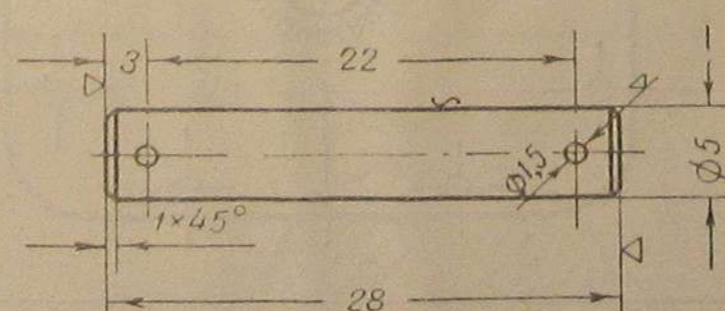 3
22
Ø1,5
Ø5
1×45°
28